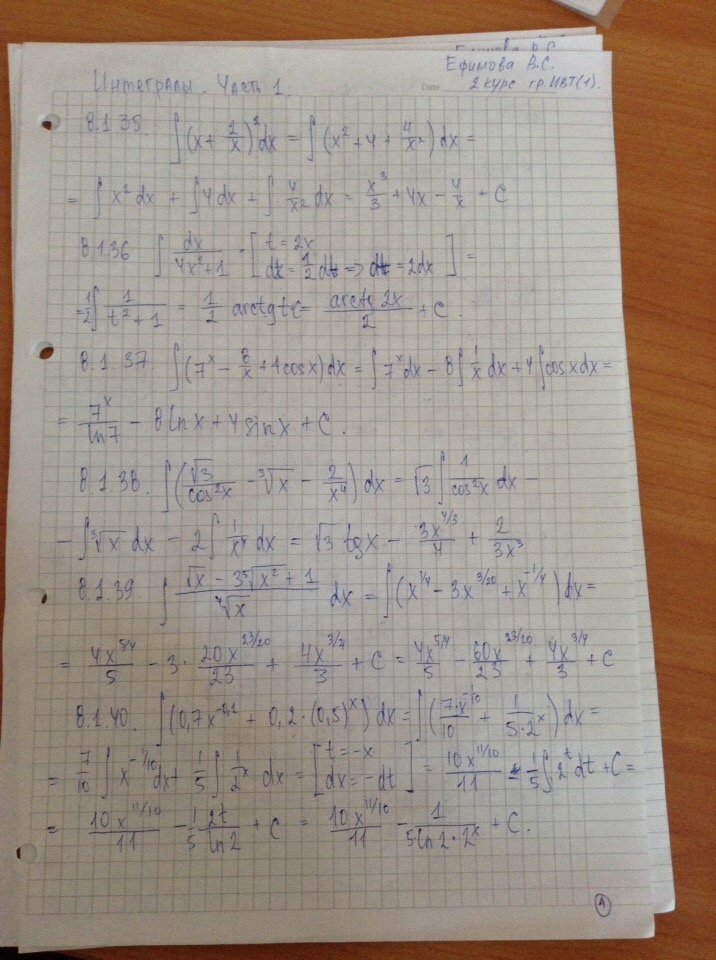 Ефимова В.С.
Интегралы. Часть 1.
Date
2 курс гр.ИВТ(1).
8.1.35. ∫(x + 2/x)² dx = ∫(x² + 4 + 4/x²) dx =
= ∫x² dx + ∫4 dx + ∫4/x² dx = x³/3 + 4x − 4/x + C
8.1.36 ∫ dx/(4x²+1) = [t = 2x
dx = 1/2 dt => dt = 2dx] =
= 1/2 ∫ 1/(t²+1) = 1/2 arctg t + C = arctg 2x/2 + C.
8.1.37. ∫(7^x − 8/x + 4cosx) dx = ∫7^x dx − 8∫1/x dx + 4∫cosx dx =
= 7^x/ln7 − 8 lnx + 4 sinx + C.
8.1.38. ∫(√3/cos²x − ³√x − 2/x⁴) dx = √3 ∫ 1/cos²x dx −
− ∫³√x dx − 2∫ 1/x⁴ dx = √3 tgx − 3x^(4/3)/4 + 2/3x³
8.1.39. ∫ (√x − 3⁵√x² + 1)/⁴√x dx = ∫(x^(1/4) − 3x^(3/20) + x^(-1/4)) dx =
= 4x^(5/4)/5 − 3 · 20x^(23/20)/23 + 4x^(3/4)/3 + C = 4x^(5/4)/5 − 60x^(23/20)/23 + 4x^(3/4)/3 + C
8.1.40. ∫(0,7x^(-0,1) + 0,2 · (0,5)^x) dx = ∫(7·x^(-1/10)/10 + 1/(5·2^x)) dx =
= 7/10 ∫ x^(-1/10) dx + 1/5 ∫ 1/2^x dx = [t = −x
dx = −dt] = 10x^(11/10)/11 − 1/5 ∫2^t dt + C =
= 10x^(11/10)/11 − 1/5 2^t/ln2 + C = 10x^(11/10)/11 − 1/(5 ln2 · 2^x) + C.
1